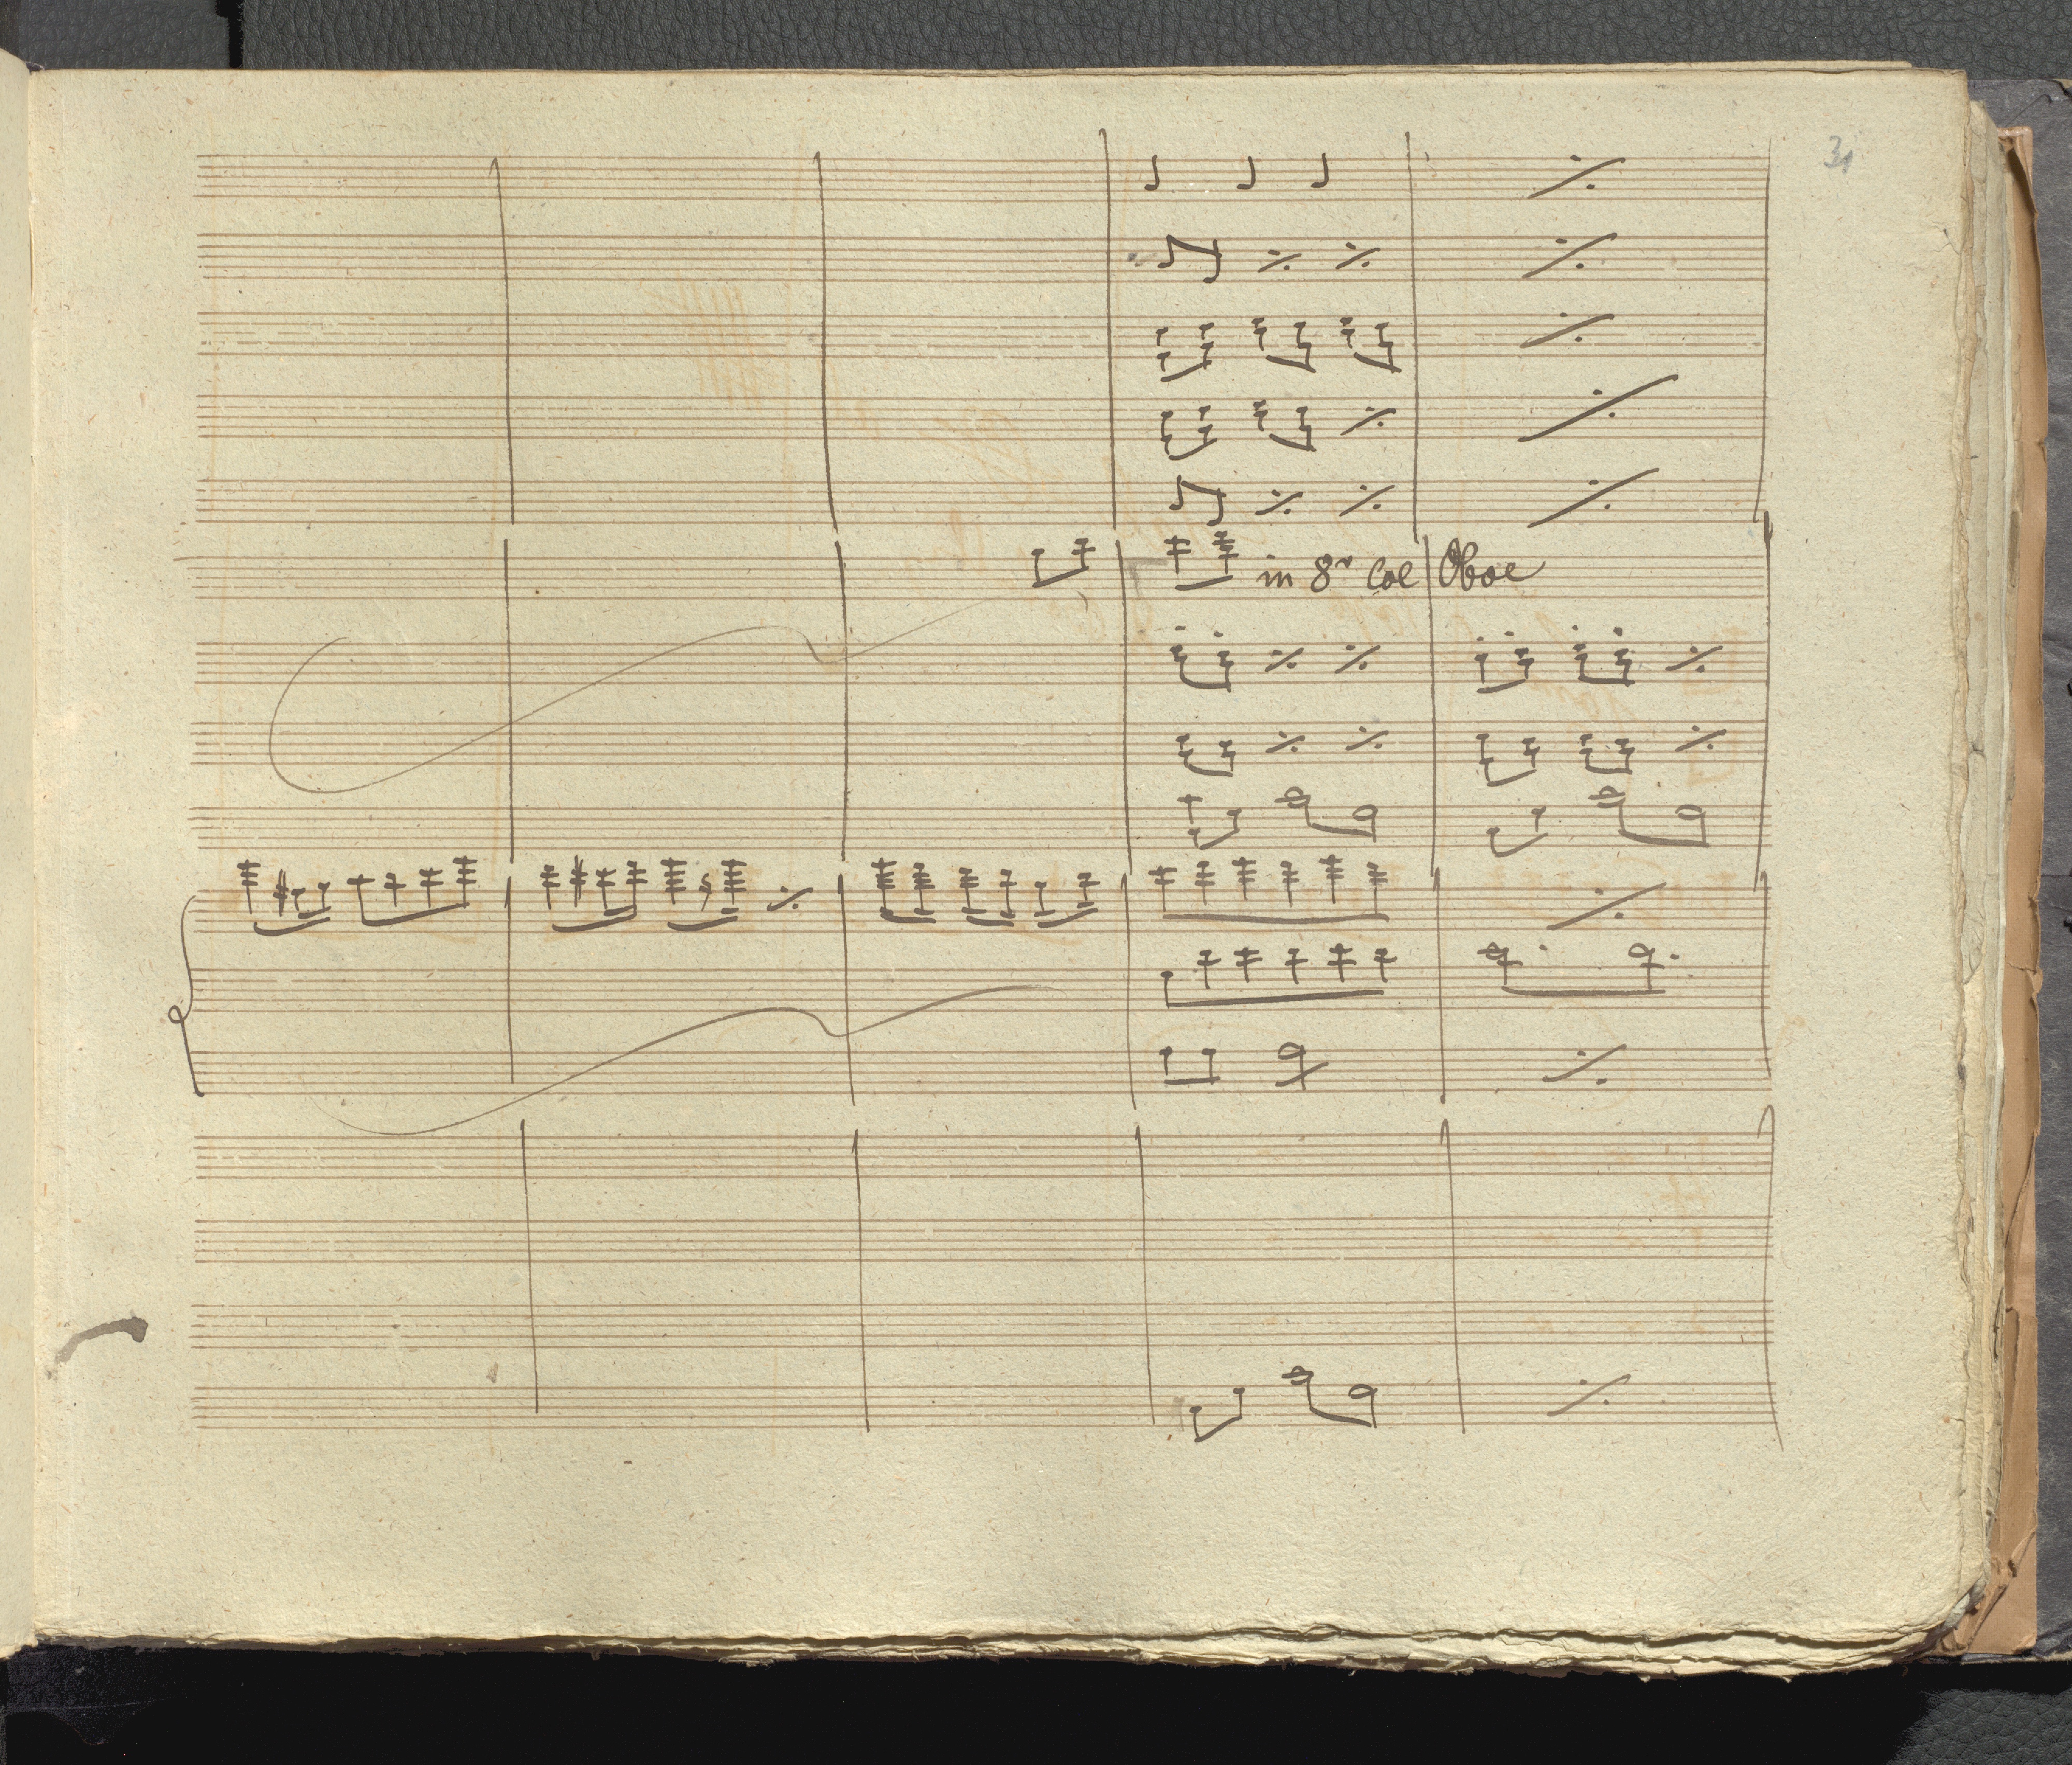 31
in 8ª Col Oboe